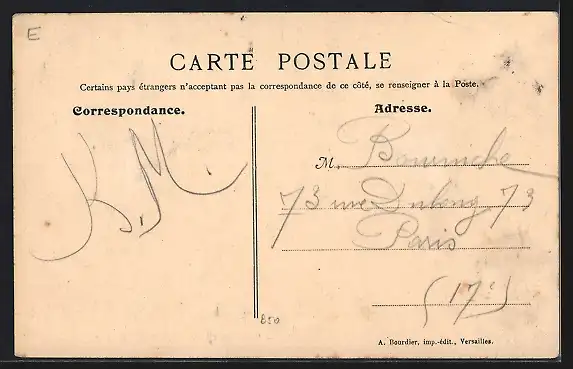 E
CARTE POSTALE
Certains pays étrangers n'acceptant pas la correspondance de ce côté, se renseigner à la Poste.
Correspondance.
K. M.
Adresse.
M.
73 rue Dulong 73
Paris
(17e)
850
A. Bourdier, imp.-édit., Versailles.